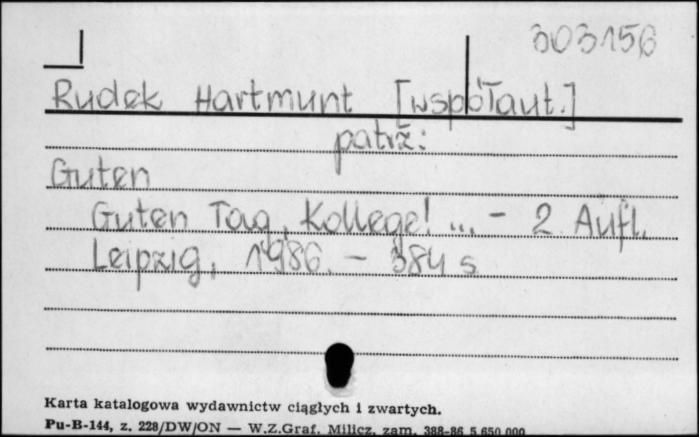 303156
Rudek Hartmunt [współaut.]
patrz:
Guten
Guten Tag, Kollege! ... - 2. Aufl.
Leipzig, 1986. - 384 s.
Karta katalogowa wydawnictw ciągłych i zwartych.
Pu-B-144, z. 228/DW/ON — W.Z.Graf. Milicz, zam. 388-86 5.650.000